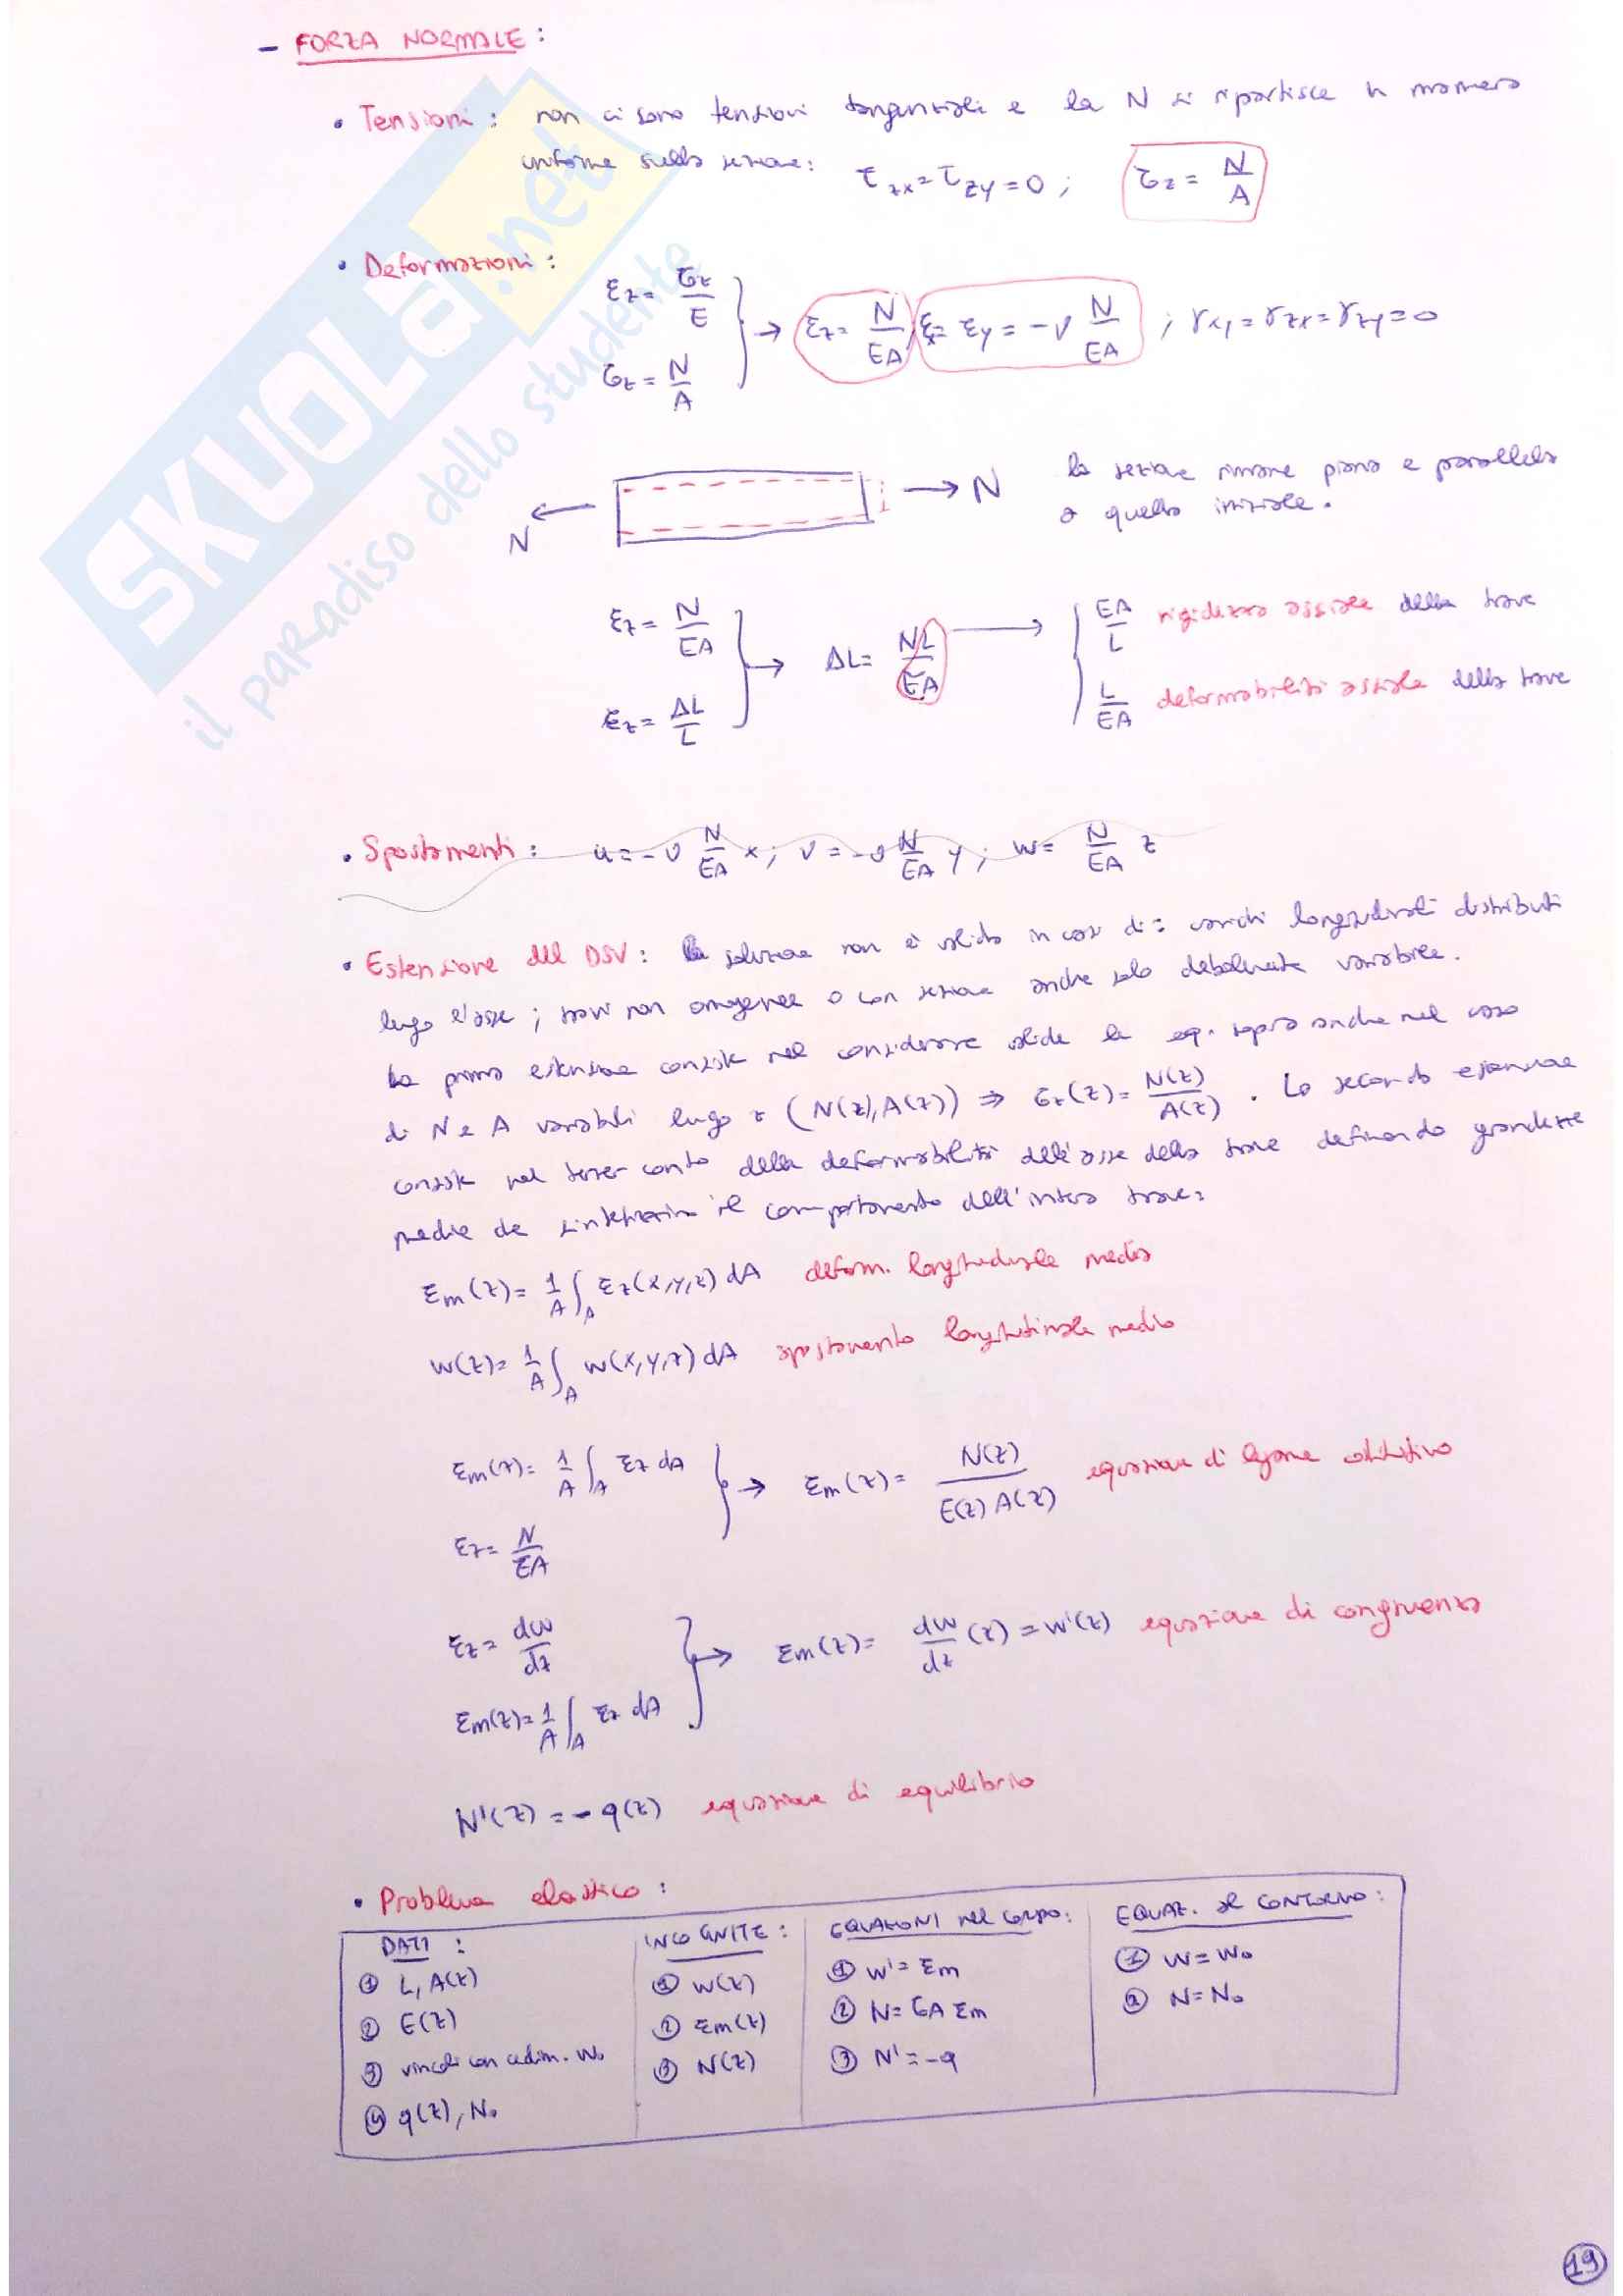 - FORZA NORMALE :
• Tensioni : non ci sono tensioni tangenziali e la N si ripartisce in maniera
uniforme sulla sezione: τzx = τzy = 0 ; σz = N/A
• Deformazioni :
εz = σz/E
σz = N/A
→ εz = N/EA ; εx = εy = -ν N/EA ; γxy = γzx = γzy = 0
N ← → N
la sezione rimane piana e parallela
a quella iniziale.
εz = N/EA
εz = ΔL/L
→ ΔL = NL/EA →
EA/L rigidezza assiale della trave
L/EA deformabilità assiale della trave
• Spostamenti : u = -ν N/EA x ; v = -ν N/EA y ; w = N/EA z
• Estensione del DSV : la soluzione non è valida in casi di : carichi longitudinali distribuiti
lungo l'asse ; travi non omogenee o con sezione anche solo debolmente variabile.
La prima estensione consiste nel considerare valide le eq. sopra anche nel caso
di N e A variabili lungo z (N(z), A(z)) ⇒ σz(z) = N(z)/A(z) . La seconda estensione
consiste nel tener conto della deformabilità dell'asse della trave definendo grandezze
medie che sintetizzino il comportamento dell'intera trave:
εm(z) = 1/A ∫A εz(x,y,z) dA deform. longitudinale media
w(z) = 1/A ∫A w(x,y,z) dA spostamento longitudinale medio
εm(z) = 1/A ∫A εz dA
εz = N/EA
→ εm(z) = N(z)/E(z) A(z) equazione di legame costitutivo
εz = dw/dz
εm(z) = 1/A ∫A εz dA
→ εm(z) = dw/dz (z) = w'(z) equazione di congruenza
N'(z) = - q(z) equazione di equilibrio
• Problema elastico :
DATI :
① L, A(z)
② E(z)
③ vincoli con cedim. w₀
④ q(z), N₀
INCOGNITE :
① w(z)
② εm(z)
③ N(z)
EQUAZIONI nel CORPO :
① w' = εm
② N = EA εm
③ N' = -q
EQUAZ. al CONTORNO :
① w = w₀
② N = N₀
19
SKUOLA.net
il paradiso dello studente